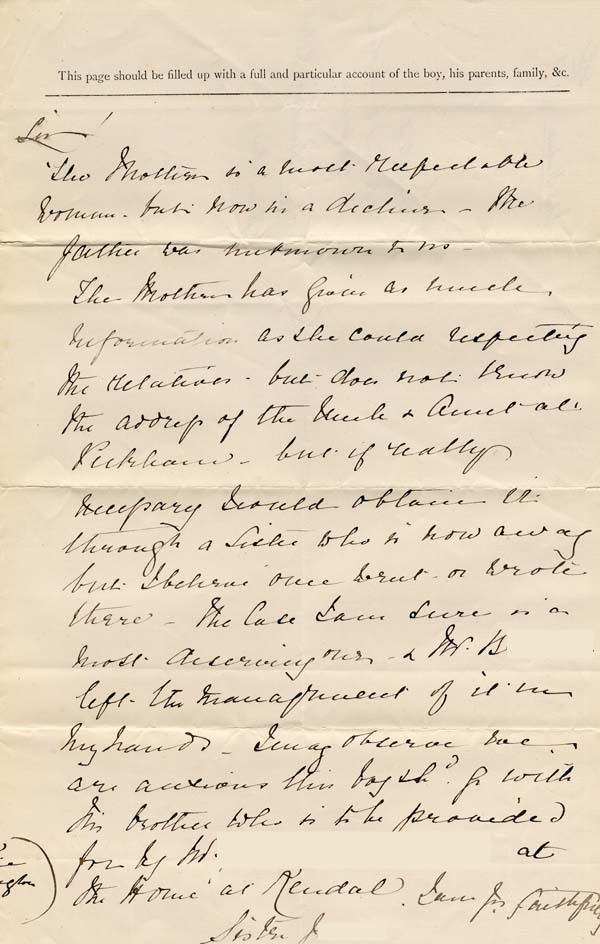 This page should be filled up with a full and particular account of the boy, his parents, family, &c.
Sir!
The Mother is a most respectable
woman - but now in a decline - The
father was unknown to us -
The Mother has given as much
information as she could respecting
the relatives - but does not know
the address of the Uncle & Aunt at
Peckham - but if really
necessary I could obtain it
through a Sister who is now away
but I believe once went or wrote
there - The Case I am sure is a
most deserving one - & Mr. B
left the management of it in
my hands - I may observe we
are anxious this boy shd. go with
his brother who is to be provided
for by Mr. at
the Home at Kendal. I am yrs faithfully
Sister J